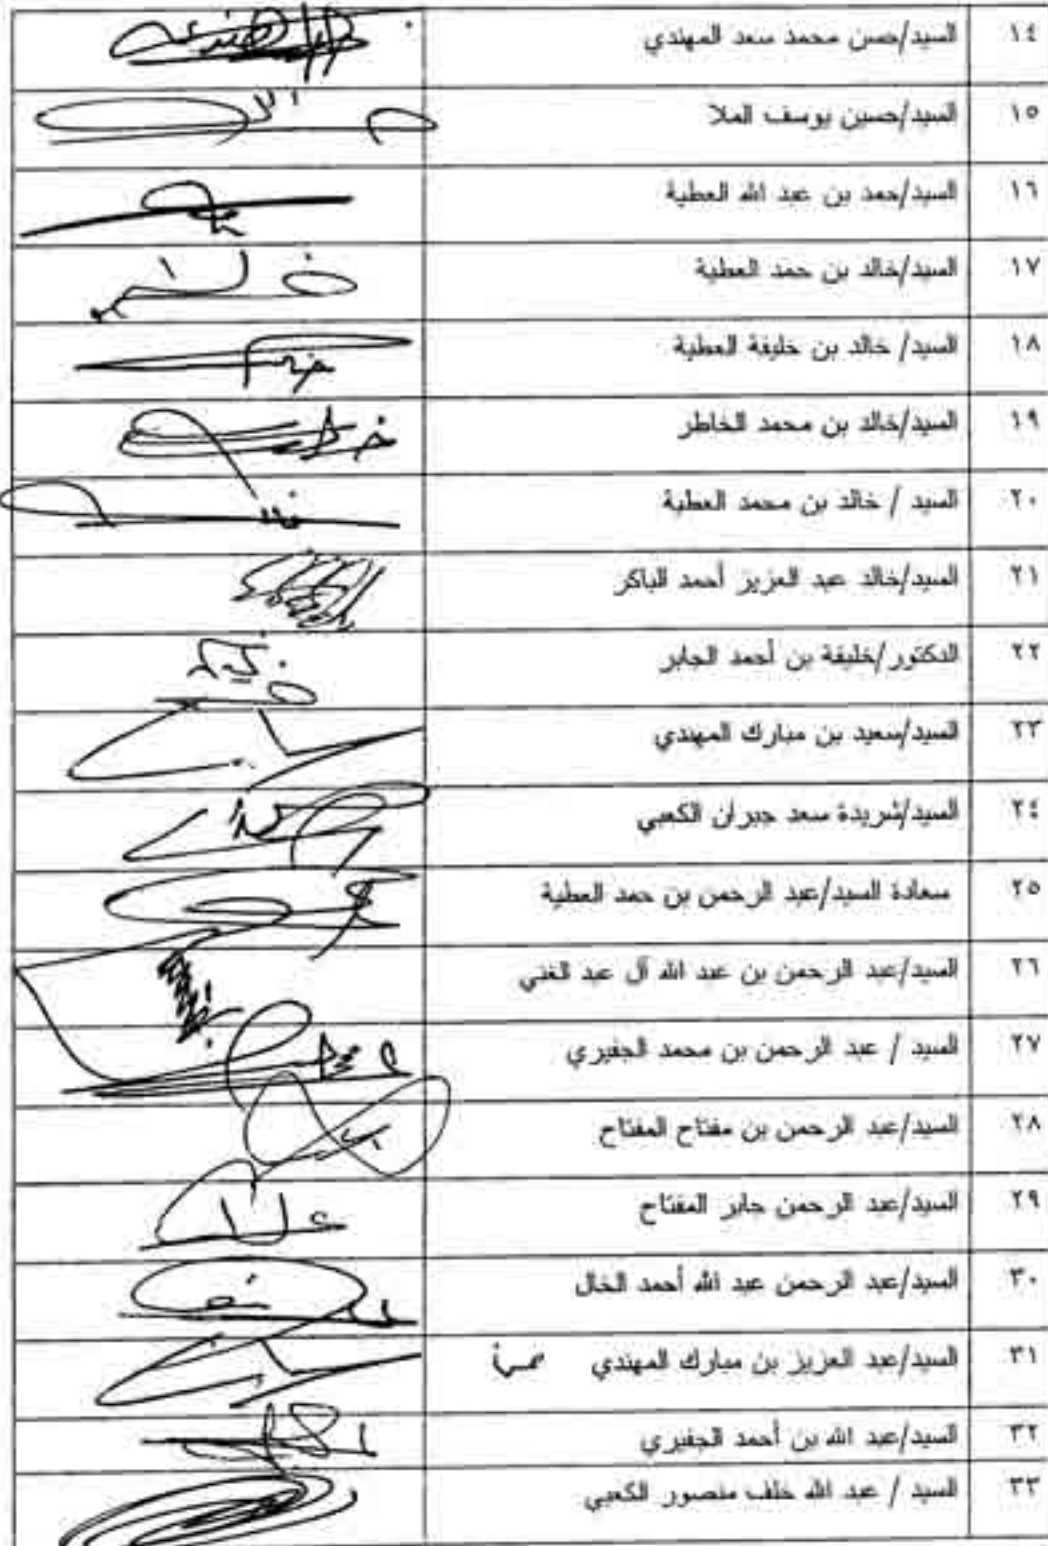 ١٤ السيد/حسن محمد سعد المهندي
١٥ السيد/حسين يوسف الملا
١٦ السيد/حمد بن عبد الله العطية
١٧ السيد/خالد بن حمد العطية
١٨ السيد/ خالد بن خليفة العطية
١٩ السيد/خالد بن محمد الخاطر
٢٠ السيد / خالد بن محمد العطية
٢١ السيد/خالد عبد العزيز أحمد الباكر
٢٢ الدكتور/خليفة بن أحمد الجابر
٢٣ السيد/سعيد بن مبارك المهندي
٢٤ السيد/شريدة سعد جبران الكعبي
٢٥ سعادة السيد/عبد الرحمن بن حمد العطية
٢٦ السيد/عبد الرحمن بن عبد الله آل عبد الغني
٢٧ السيد / عبد الرحمن بن محمد الجفيري
٢٨ السيد/عبد الرحمن بن مفتاح المفتاح
٢٩ السيد/عبد الرحمن جابر المفتاح
٣٠ السيد/عبد الرحمن عبد الله أحمد الخال
٣١ السيد/عبد العزيز بن مبارك المهندي
٣٢ السيد/عبد الله بن أحمد الجفيري
٣٣ السيد / عبد الله خلف منصور الكعبي